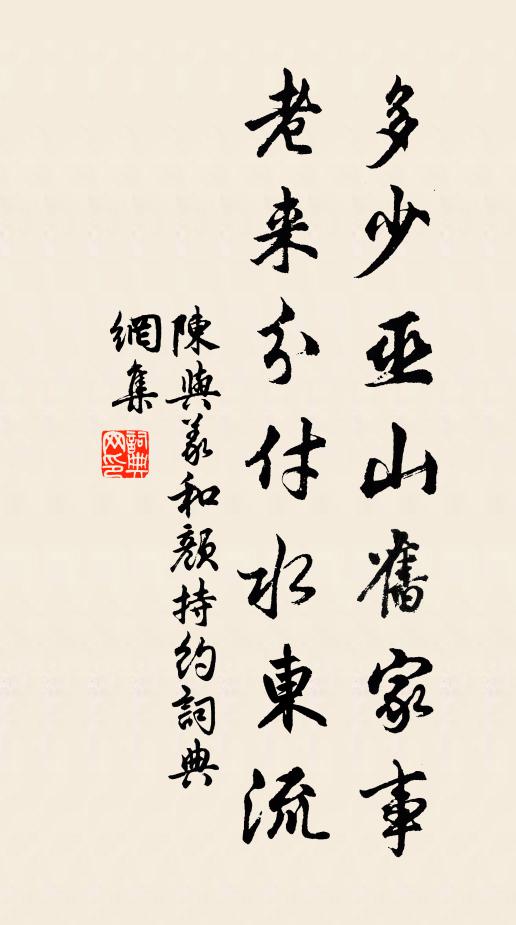 多少巫山舊家事
老来分付水東流
陳與義和顏持約詞典
網集
詞典
网印